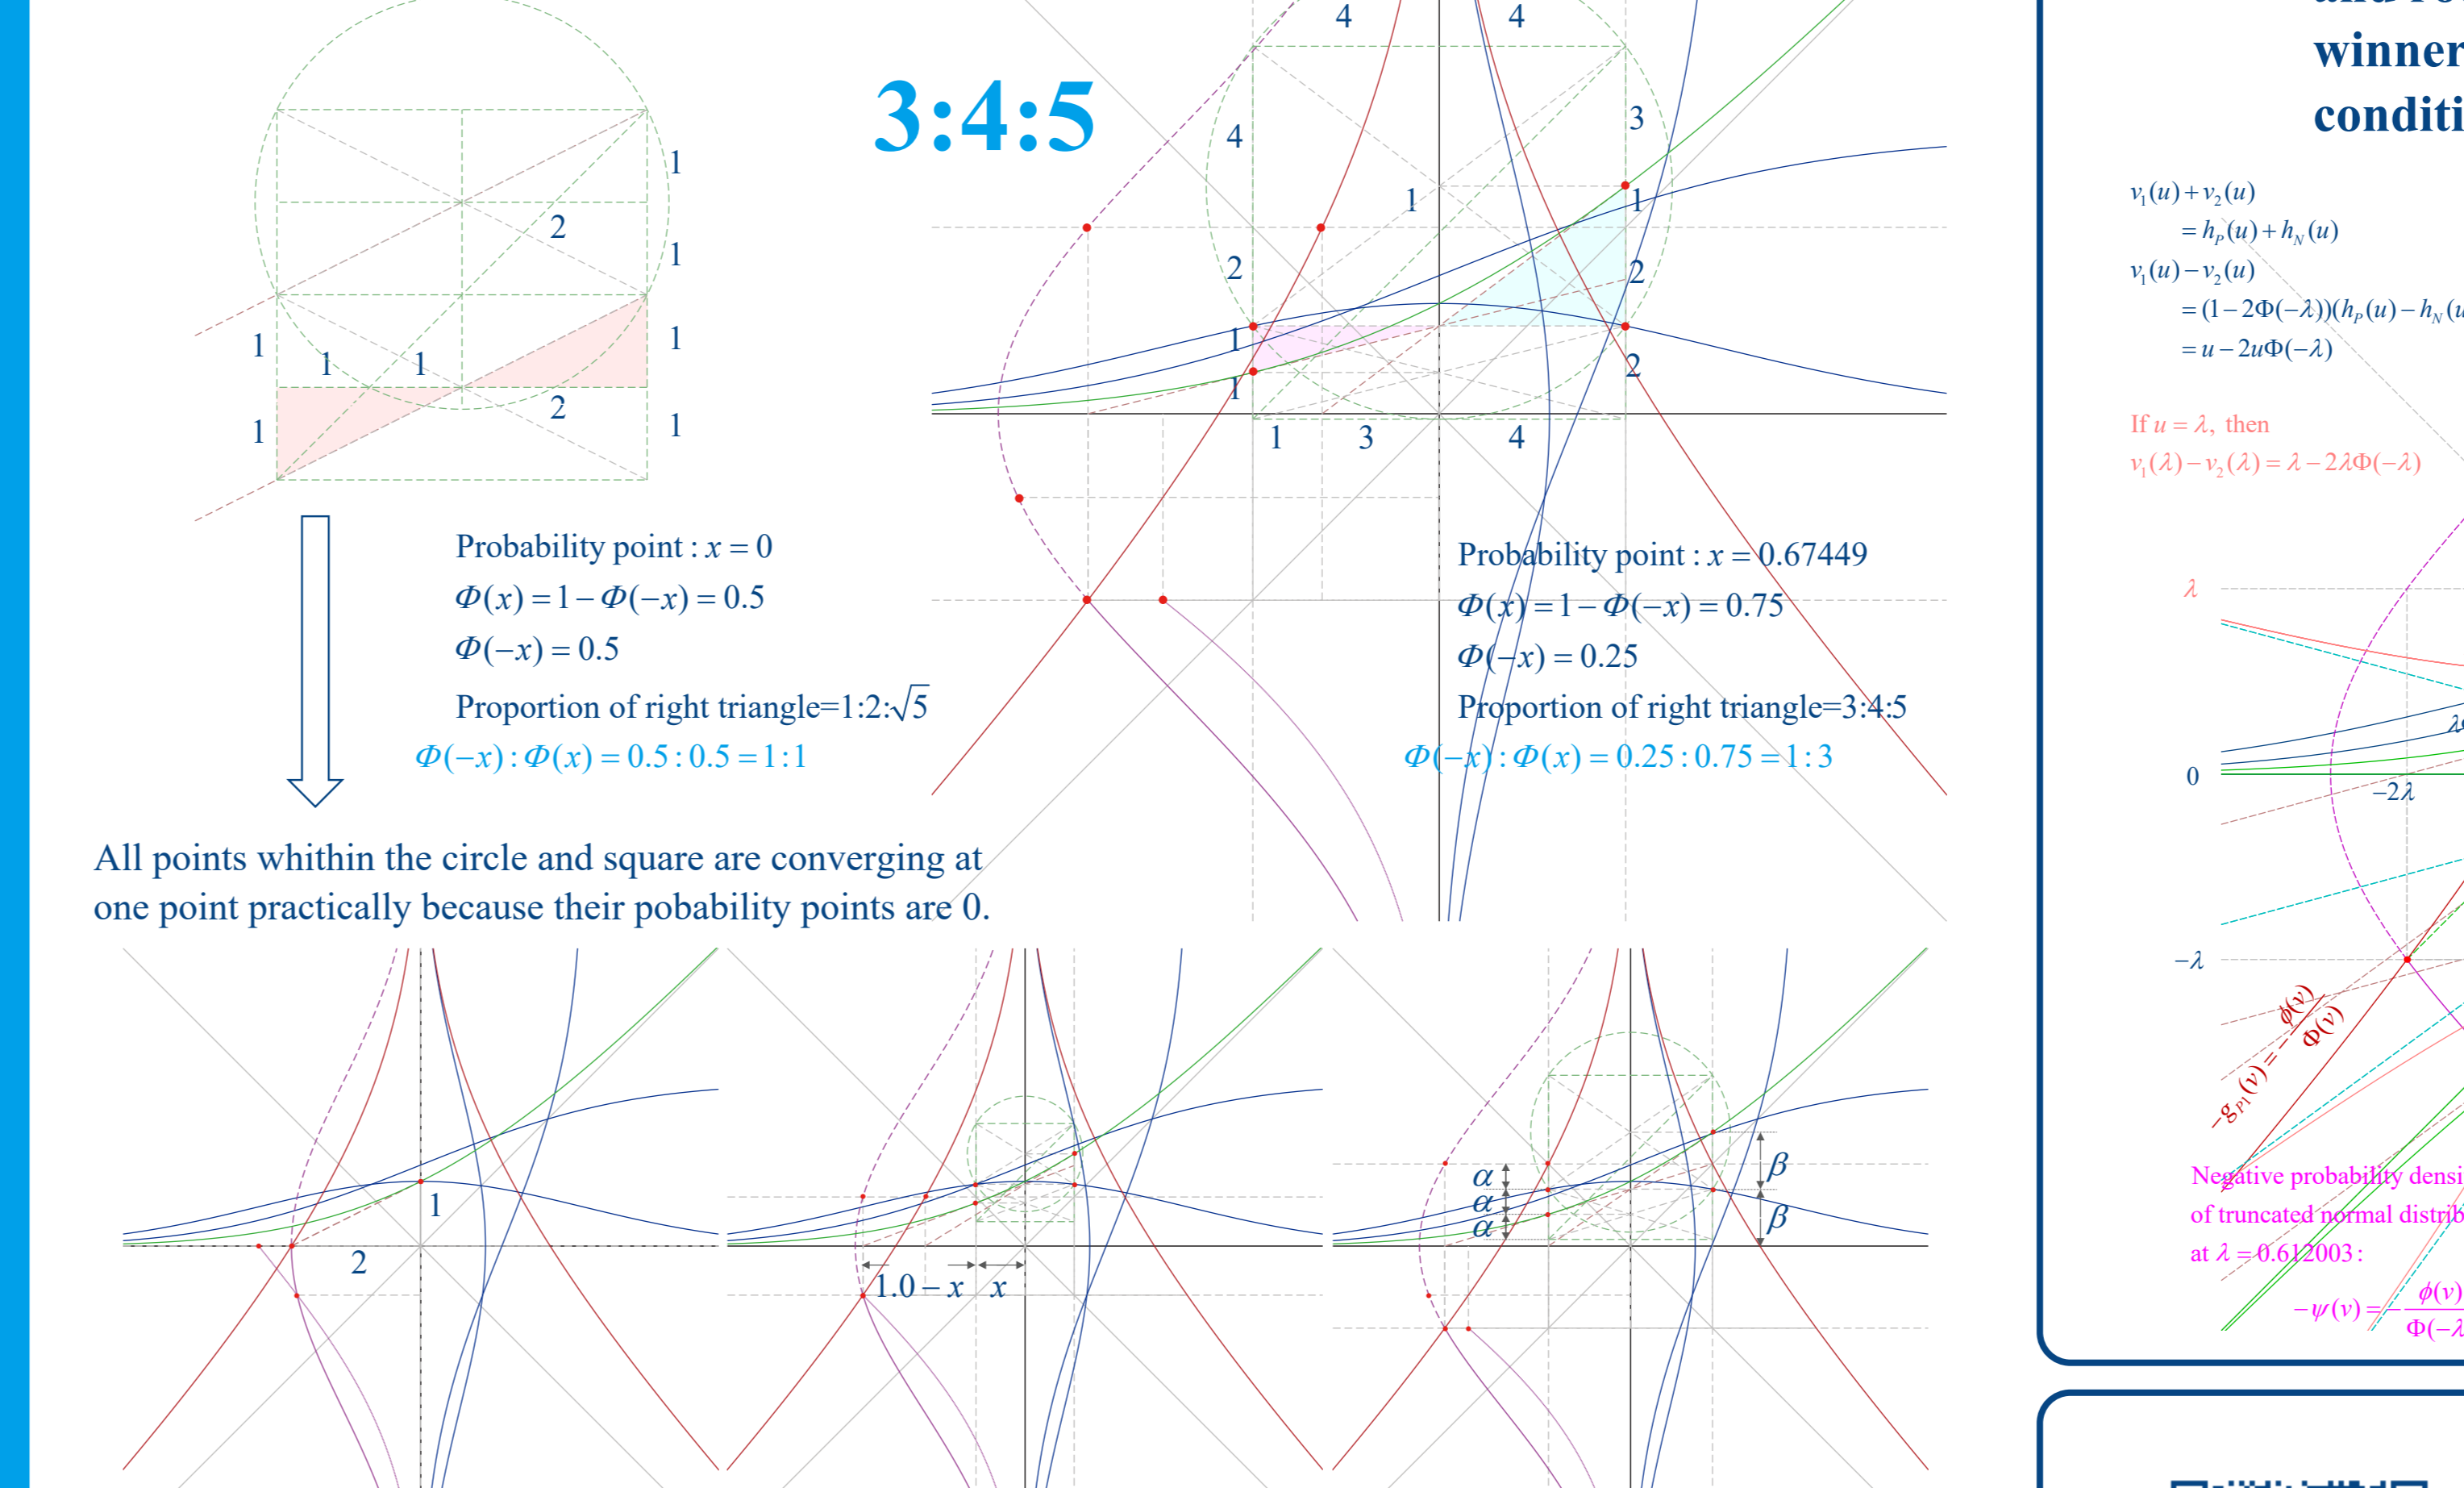 3:4:5
1
1
2
1
1
1
1
1
1
2
1
4
4
4
3
1
1
2
2
1
1
2
1
3
4
Probability point : x = 0
Φ(x) = 1 − Φ(−x) = 0.5
Φ(−x) = 0.5
Proportion of right triangle=1:2:√5
Φ(−x) : Φ(x) = 0.5 : 0.5 = 1 : 1
Probability point : x = 0.67449
Φ(x) = 1 − Φ(−x) = 0.75
Φ(−x) = 0.25
Proportion of right triangle=3:4:5
Φ(−x) : Φ(x) = 0.25 : 0.75 = 1 : 3
All points whithin the circle and square are converging at
one point practically because their pobability points are 0.
1
2
1.0 − x
x
α
α
α
β
β
winner
v₁(u) + v₂(u)
= h_P(u) + h_N(u)
v₁(u) − v₂(u)
= (1 − 2Φ(−λ))(h_P(u) − h_N(u
= u − 2uΦ(−λ)
If u = λ, then
v₁(λ) − v₂(λ) = λ − 2λΦ(−λ)
λ
0
−2λ
−λ
−g_P1(v) = − ϕ(v) / Φ(v)
Negative probability densi
of truncated normal distrib
at λ = 0.612003 :
−ψ(v) = − ϕ(v) / Φ(−λ